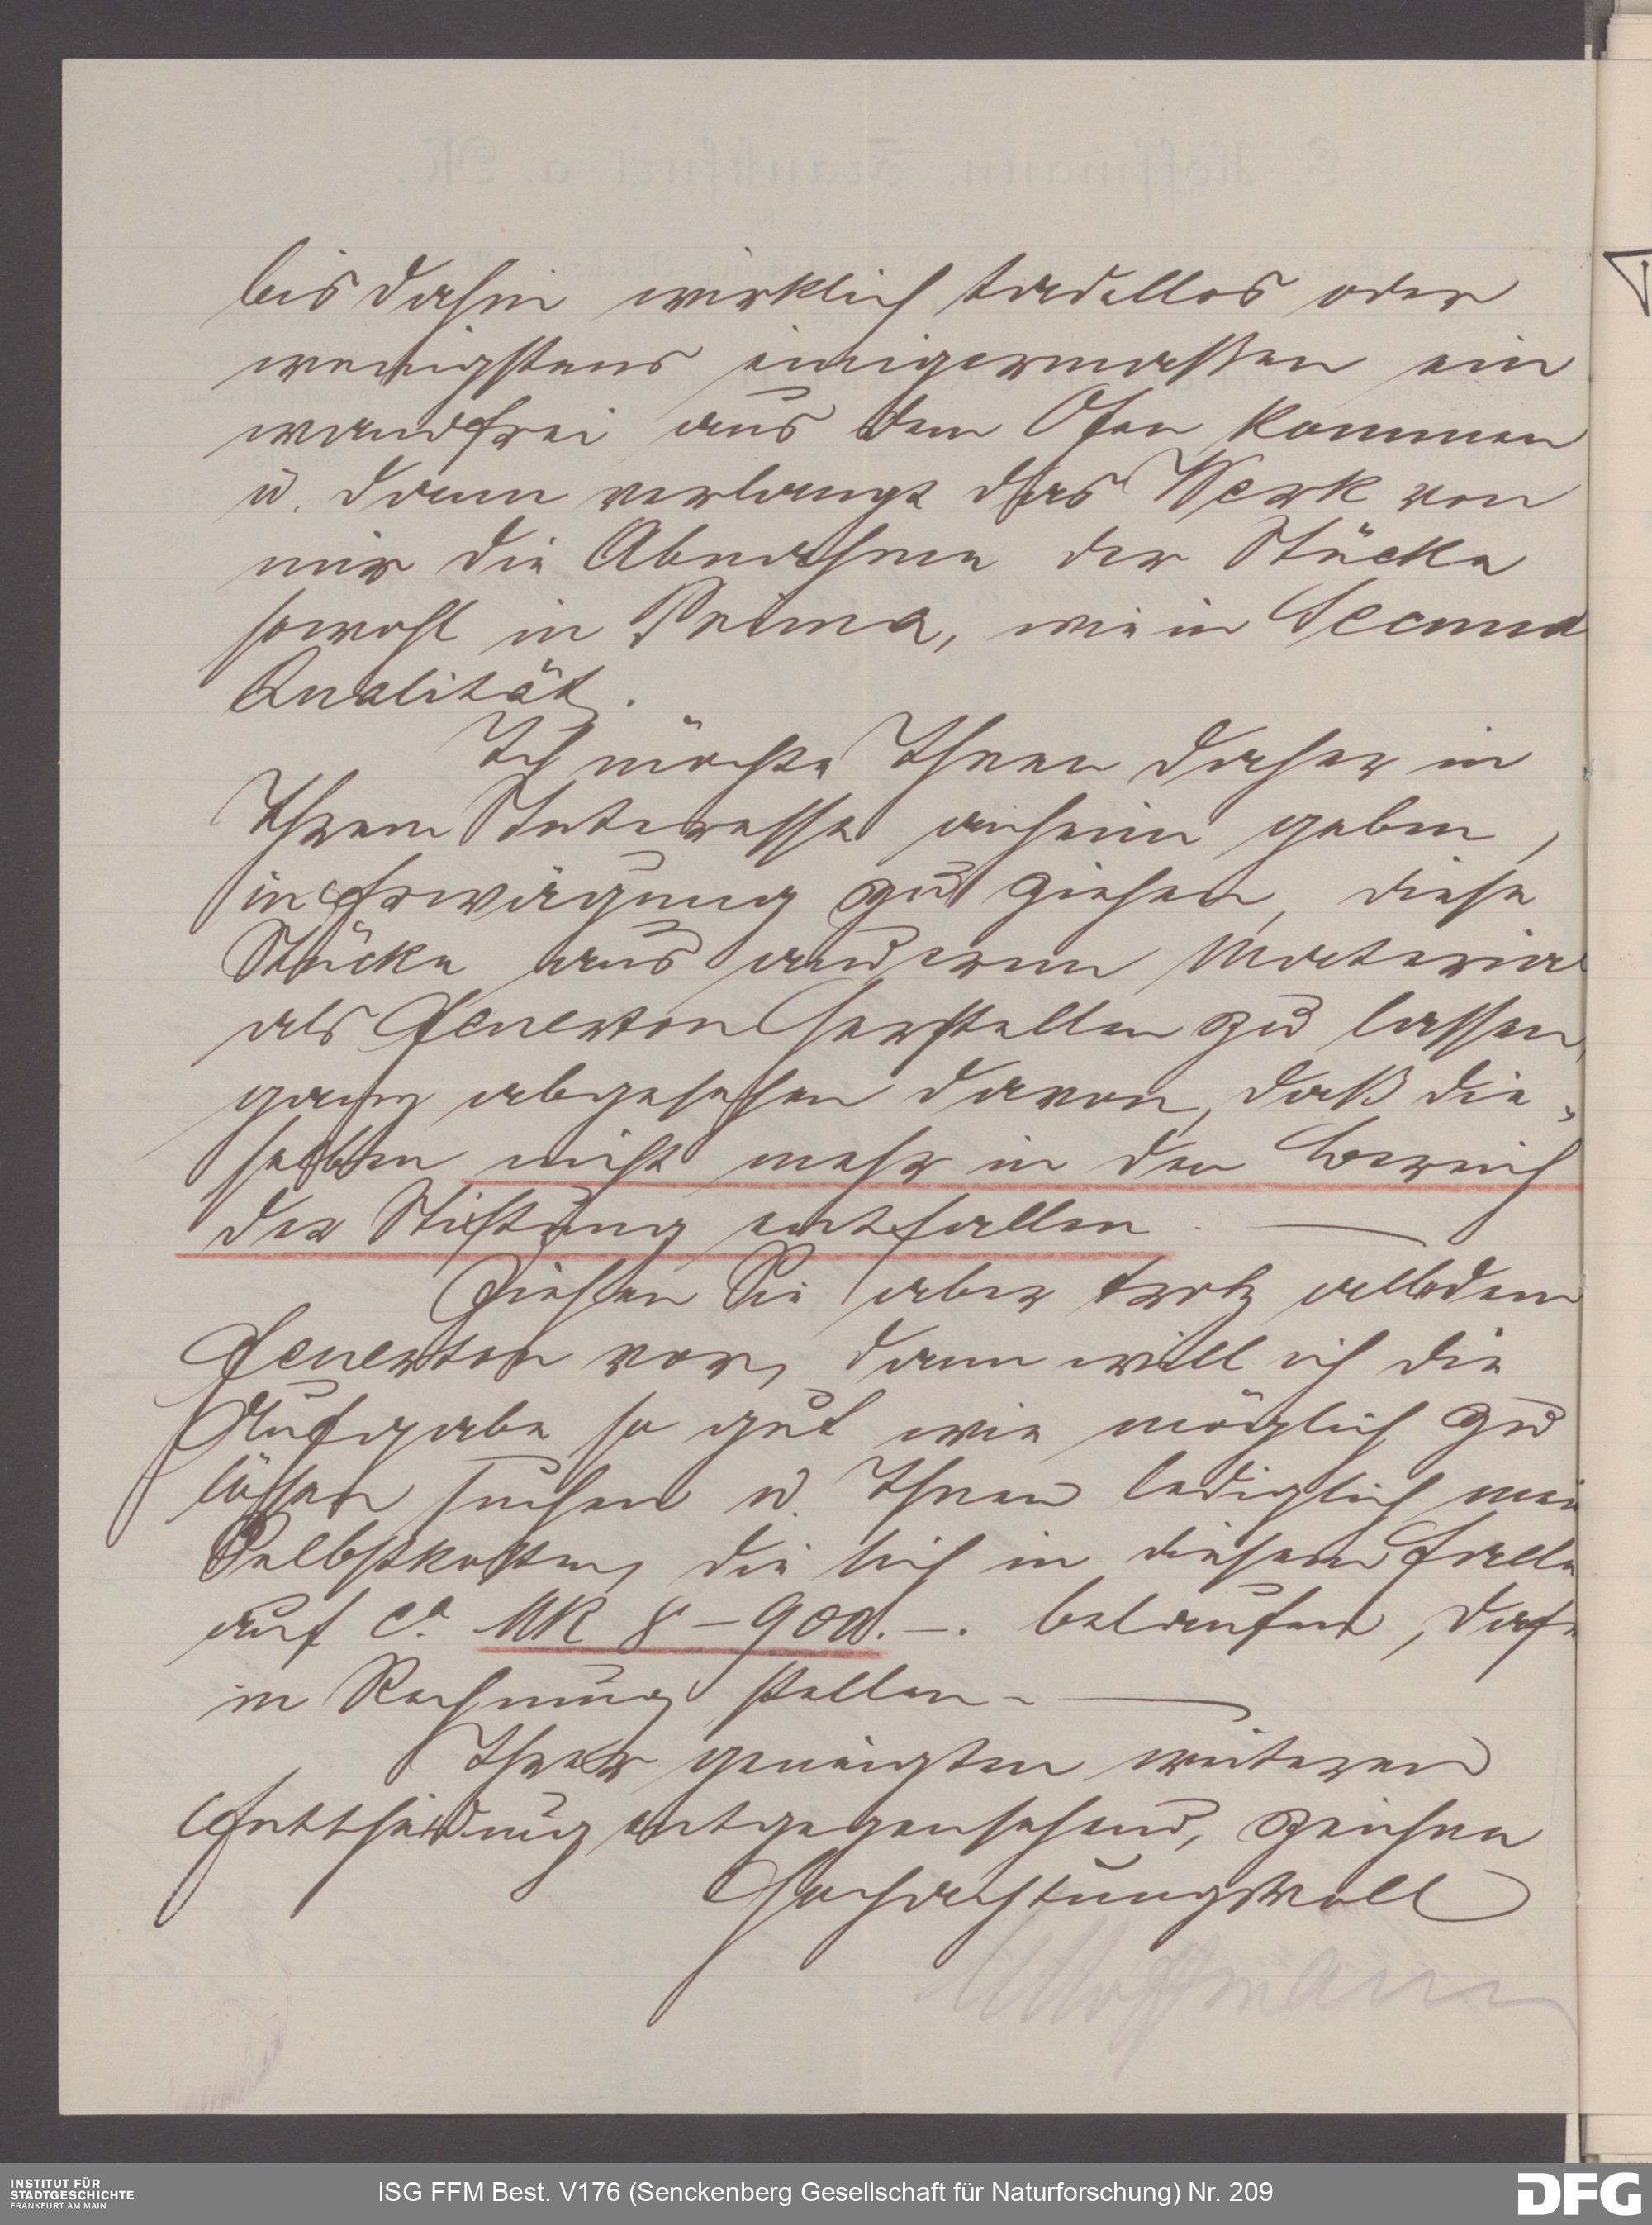 bis dahin wirklich tadellos oder
wenigstens einigermaßen ein
wandfrei aus dem Ofen kommen
u. dann verlangt das Werk von
mir die Abnahme der Stücke
sowohl in Prima, wie in Secunda
Qualität.
Ich möchte Ihnen daher in
Ihrem Interesse anheim geben,
in Erwägung zu ziehen, diese
Stücke aus anderem Material
als Feuerton herstellen zu lassen,
ganz abgesehen davon, daß die-
selben nicht mehr in den Bereich
der Stiftung entfallen. —
Ziehen Sie aber trotz alledem
Feuerton vor, dann will ich die
Aufgabe so gut wie möglich zu
lösen suchen u. Ihnen lediglich mein
Selbstkosten, die sich in diesem Falle
auf ca. MK 8–900.–. belaufen,
in Rechnung stellen. —
Ihrer geneigten weiteren
Entscheidung entgegensehend, zeichne
Hochachtungsvoll
Hoffmann
INSTITUT FÜR
STADTGESCHICHTE
FRANKFURT AM MAIN
ISG FFM Best. V176 (Senckenberg Gesellschaft für Naturforschung) Nr. 209
DFG